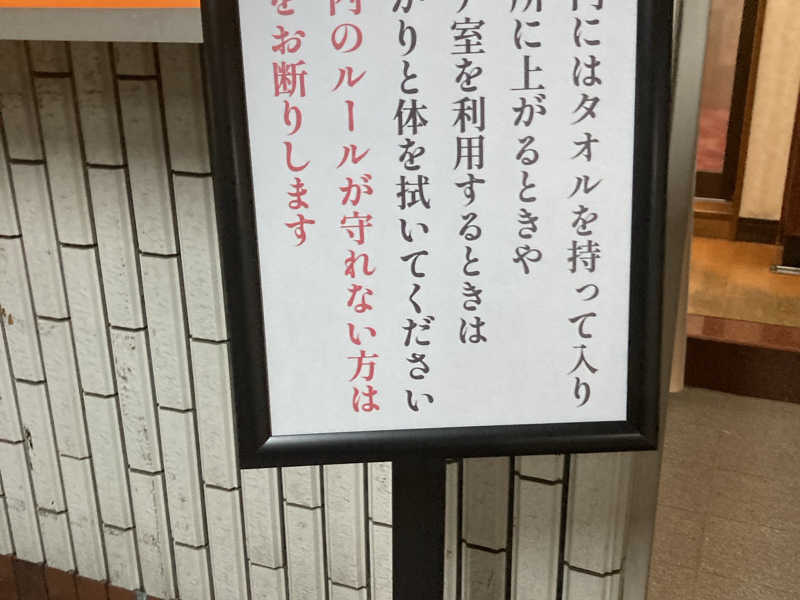 内にはタオルを持って入り
所に上がるときや
室を利用するときは
かりと体を拭いてください
内のルールが守れない方は
をお断りします